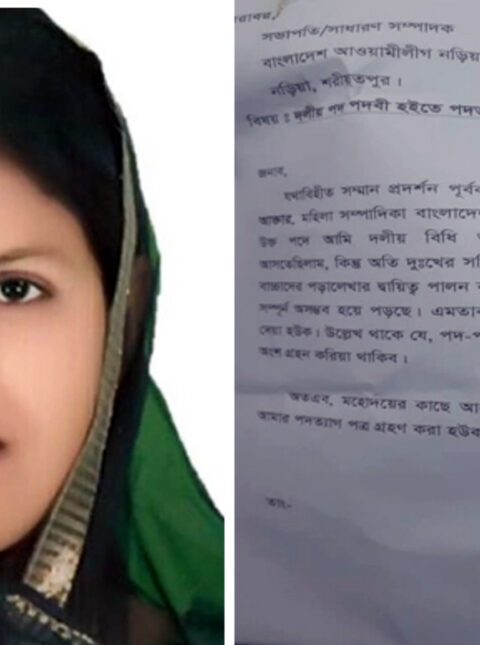 বরাবর,
সভাপতি/সাধারণ সম্পাদক
বাংলাদেশ আওয়ামীলীগ নড়িয়া
নড়িয়া, শরীয়তপুর ।
বিষয় : দলীয় পদ পদবী হইতে
জনাব,
যথাবিহীত সম্মান প্রদর্শন পূর্বক
আক্তার, মহিলা সম্পাদিকা বাংলাদেশ
উক্ত পদে আমি দলীয় বিধি
আসতেছিলাম, কিন্তু অতি দুঃখের
বাচ্চাদের পড়ালেখার দ্বায়িত্ব পালন
সম্পূর্ন অসম্ভব হয়ে পড়ছে । এমতাব
দেয়া হউক । উল্লেখ থাকে যে, পদ-প
অংশ গ্রহন করিয়া থাকিব ।
অতএব, মহোদয়ের কাছে
আমার পদত্যাগ পত্র গ্রহণ করা হউক
তাং-